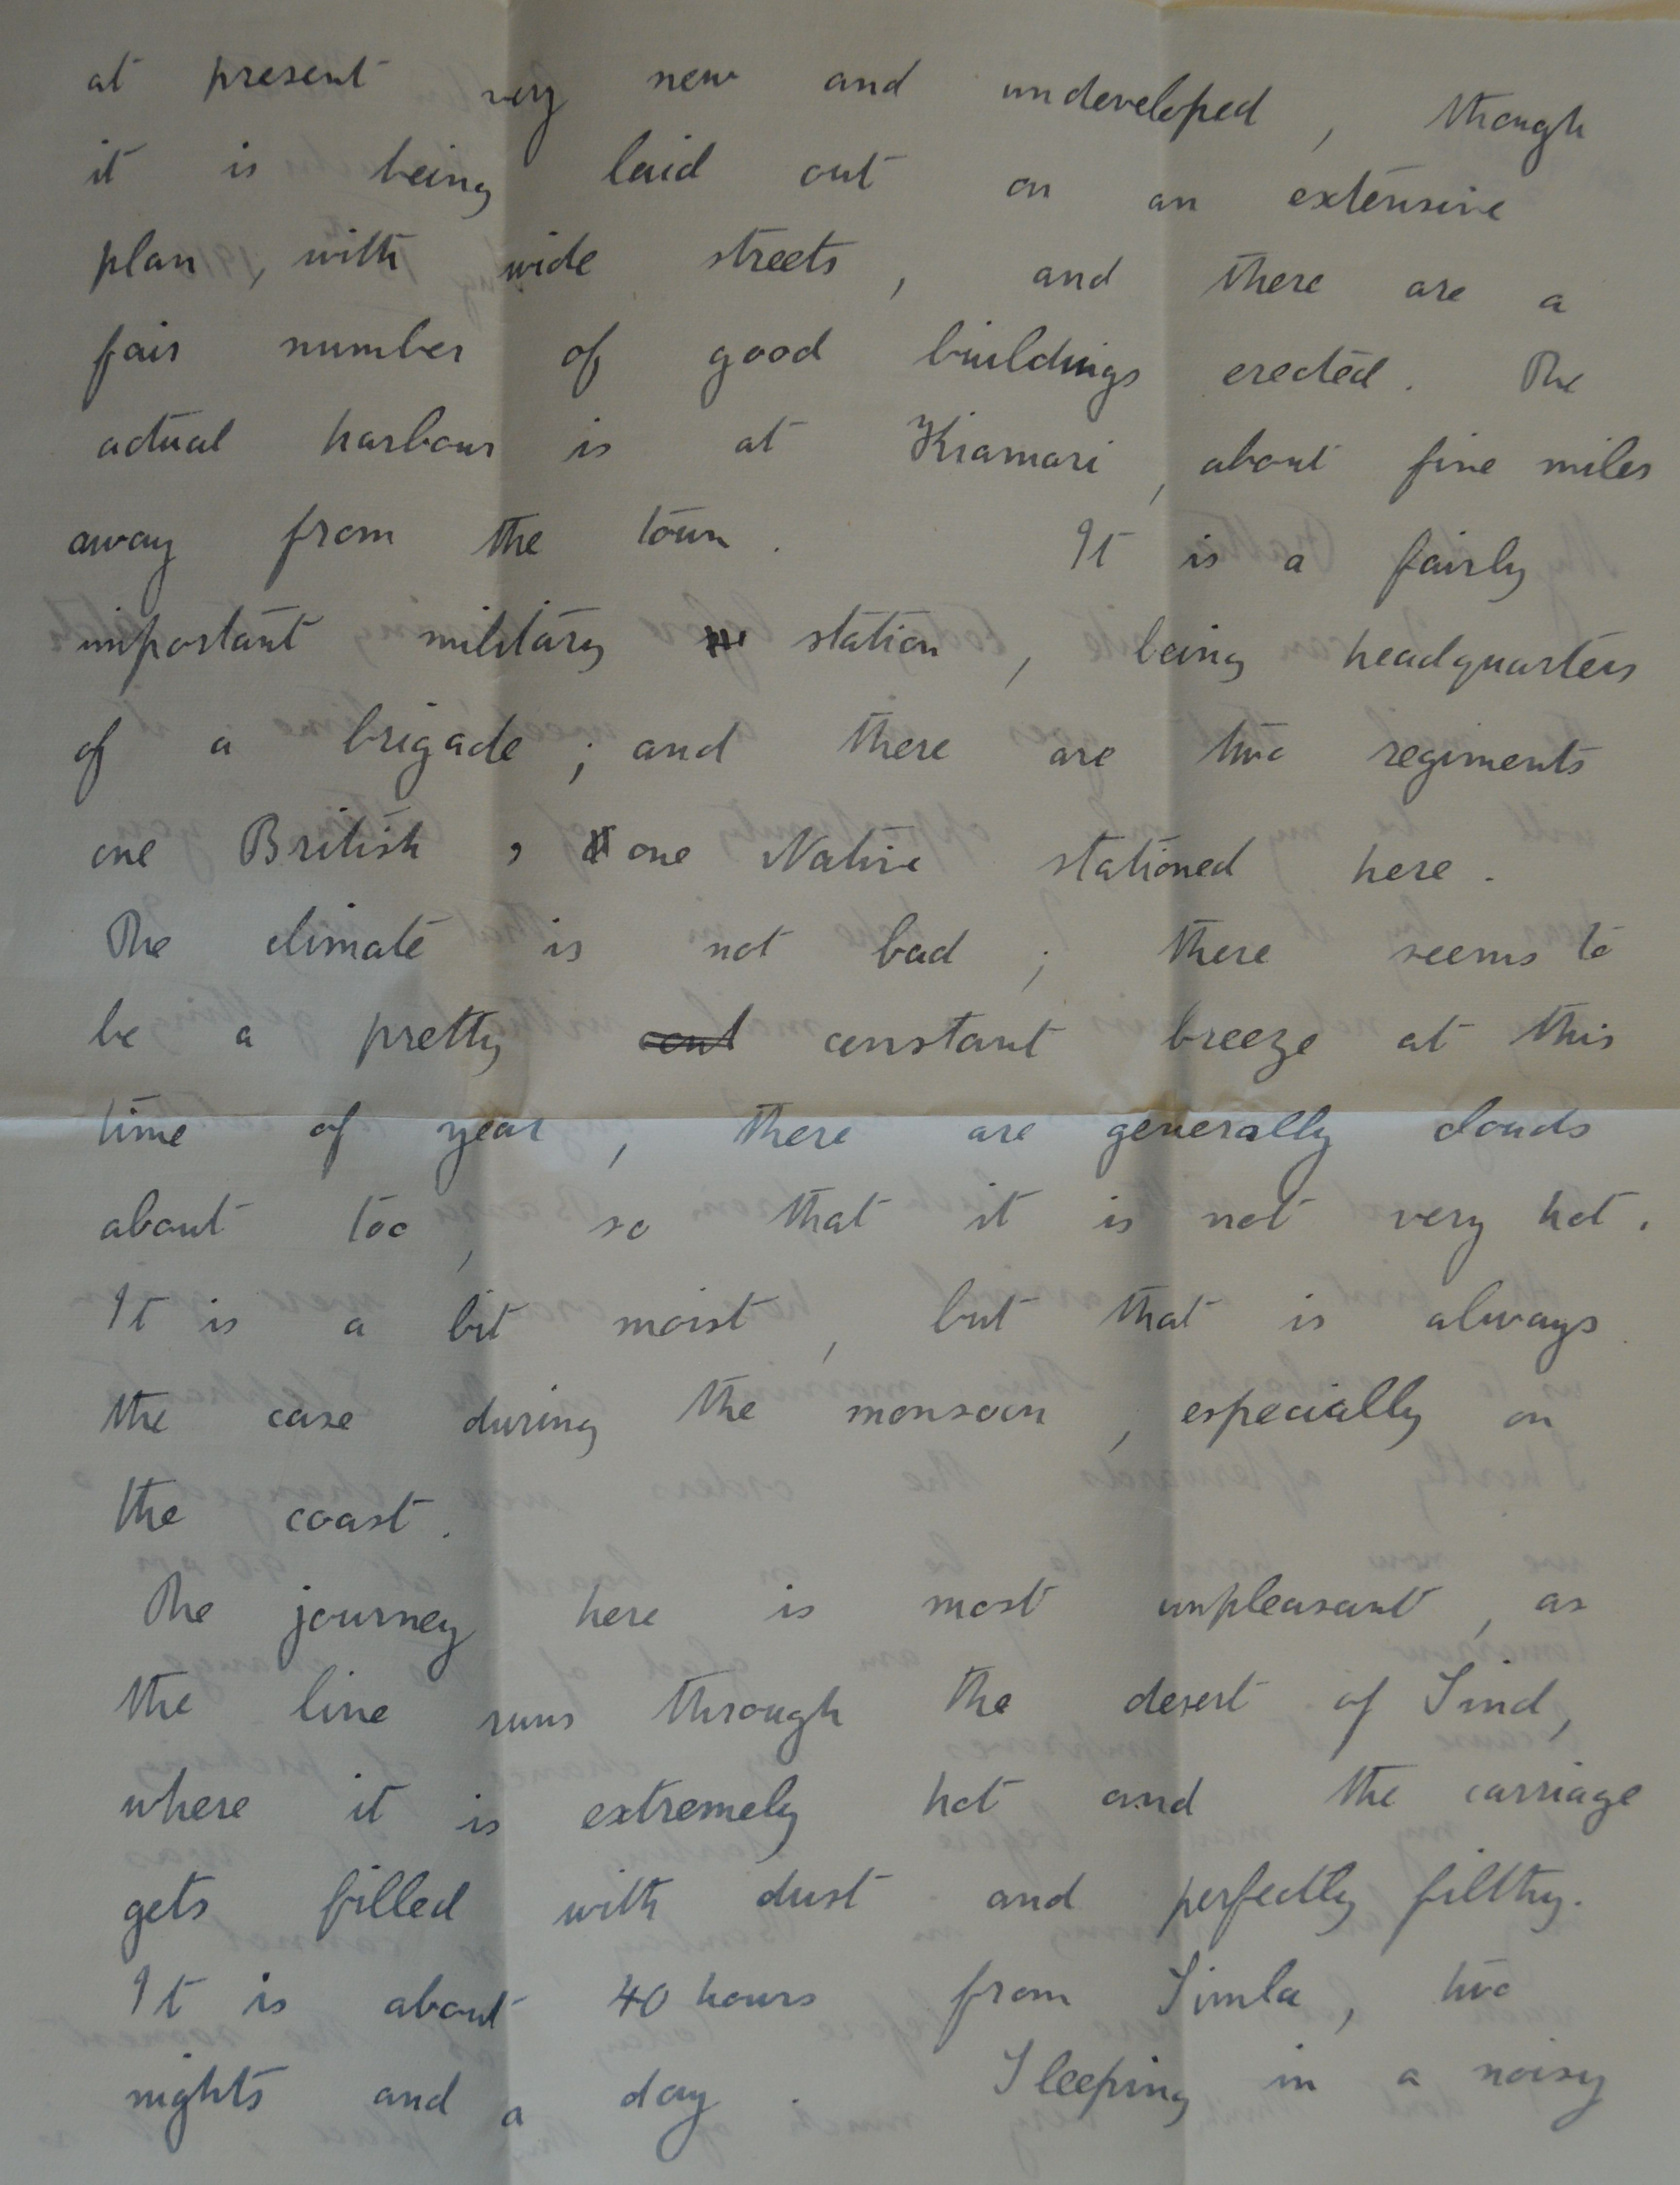 at present very new and undeveloped, though
it is being laid out on an extensive
plan, with wide streets, and there are a
fair number of good buildings erected. The
actual harbour is at Kiamari, about five miles
away from the town. It is a fairly
important military station, being headquarters
of a brigade; and there are two regiments
one British, one Native stationed here.
The climate is not bad; there seems to
be a pretty constant breeze at this
time of year, there are generally clouds
about too, so that it is not very hot.
It is a bit moist, but that is always
the case during the monsoon, especially on
the coast.
The journey here is most unpleasant, as
the line runs through the desert of Sind,
where it is extremely hot and the carriage
gets filled with dust and perfectly filthy.
It is about 40 hours from Simla, two
nights and a day. Sleeping in a noisy